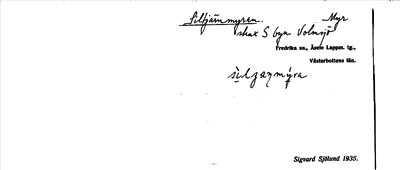 Siltjärnmyren. Myr
strax S byn Volmsjö
Fredrika sn., Åsele Lappm. tg.,
Västerbottens län.
Sigvard Sjölund 1935.